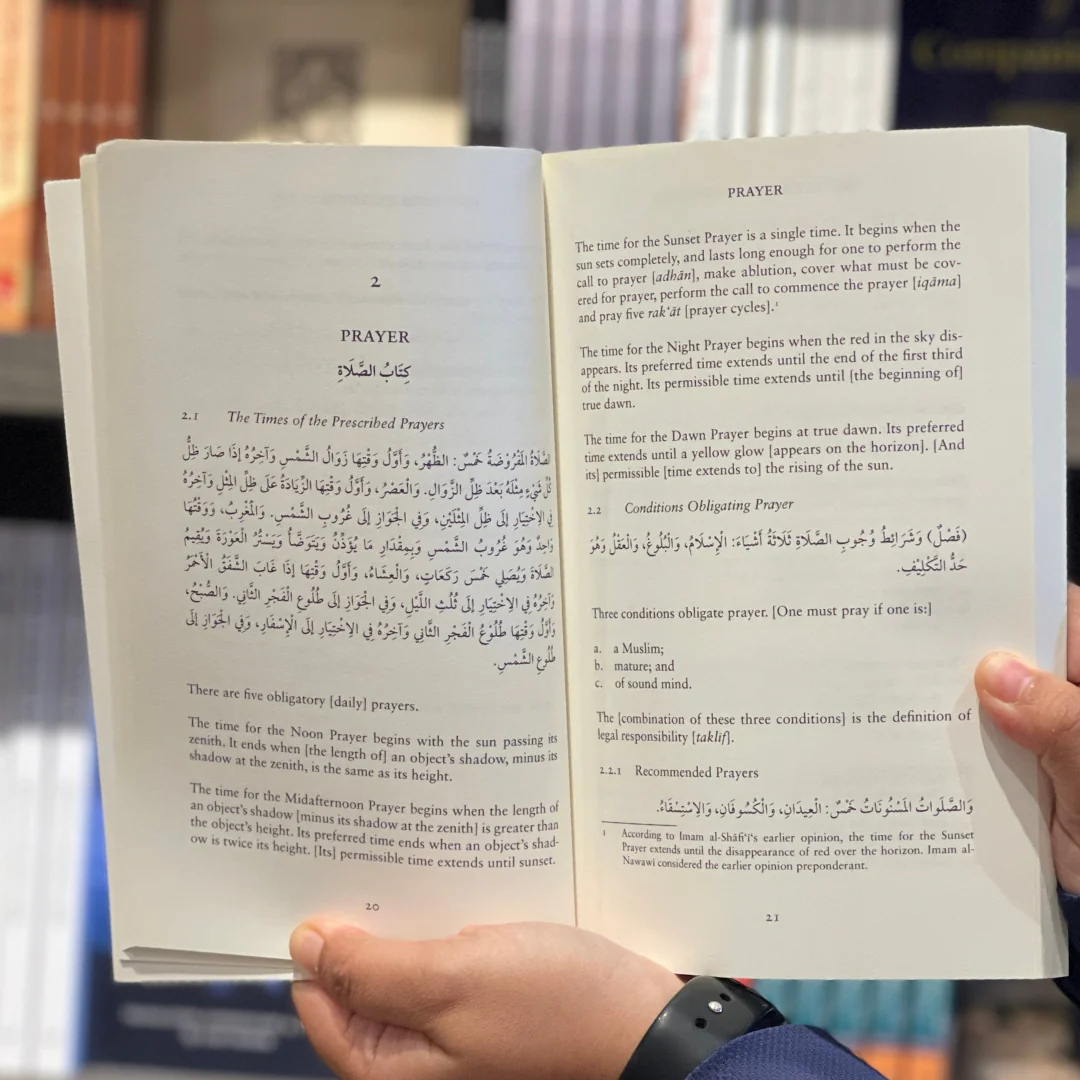 2
PRAYER
كِتَابُ الصَّلَاةِ
2.1 The Times of the Prescribed Prayers
الصَّلَاةُ الْمَفْرُوضَةُ خَمْسٌ: الظُّهْرُ، وَأَوَّلُ وَقْتِهَا زَوَالُ الشَّمْسِ وَآخِرُهُ إِذَا صَارَ ظِلُّ
كُلِّ شَيْءٍ مِثْلَهُ بَعْدَ ظِلِّ الزَّوَالِ. وَالْعَصْرُ، وَأَوَّلُ وَقْتِهَا الزِّيَادَةُ عَلَى ظِلِّ الْمِثْلِ وَآخِرُهُ
فِي الِاخْتِيَارِ إِلَى ظِلِّ الْمِثْلَيْنِ، وَفِي الْجَوَازِ إِلَى غُرُوبِ الشَّمْسِ. وَالْمَغْرِبُ، وَوَقْتُهَا
وَاحِدٌ وَهُوَ غُرُوبُ الشَّمْسِ وَبِمِقْدَارِ مَا يُؤَذِّنُ وَيَتَوَضَّأُ وَيَسْتُرُ الْعَوْرَةَ وَيُقِيمُ
الصَّلَاةَ وَيُصَلِّي خَمْسَ رَكَعَاتٍ، وَالْعِشَاءُ، وَأَوَّلُ وَقْتِهَا إِذَا غَابَ الشَّفَقُ الْأَحْمَرُ
وَآخِرُهُ فِي الِاخْتِيَارِ إِلَى ثُلُثِ اللَّيْلِ، وَفِي الْجَوَازِ إِلَى طُلُوعِ الْفَجْرِ الثَّانِي. وَالصُّبْحُ،
وَأَوَّلُ وَقْتِهَا طُلُوْعُ الْفَجْرِ الثَّانِي وَآخِرُهُ فِي الِاخْتِيَارِ إِلَى الْإِسْفَارِ، وَفِي الْجَوَازِ إِلَى
طُلُوعِ الشَّمْسِ.
There are five obligatory [daily] prayers.
The time for the Noon Prayer begins with the sun passing its
zenith. It ends when [the length of] an object's shadow, minus its
shadow at the zenith, is the same as its height.
The time for the Midafternoon Prayer begins when the length of
an object's shadow [minus its shadow at the zenith] is greater than
the object's height. Its preferred time ends when an object's shad-
ow is twice its height. [Its] permissible time extends until sunset.
20
PRAYER
The time for the Sunset Prayer is a single time. It begins when the
sun sets completely, and lasts long enough for one to perform the
call to prayer [adhān], make ablution, cover what must be cov-
ered for prayer, perform the call to commence the prayer [iqāma]
and pray five rak'āt [prayer cycles].¹
The time for the Night Prayer begins when the red in the sky dis-
appears. Its preferred time extends until the end of the first third
of the night. Its permissible time extends until [the beginning of]
true dawn.
The time for the Dawn Prayer begins at true dawn. Its preferred
time extends until a yellow glow [appears on the horizon]. [And
its] permissible [time extends to] the rising of the sun.
2.2 Conditions Obligating Prayer
(فَصْلٌ) وَشَرَائِطُ وُجُوبِ الصَّلَاةِ ثَلَاثَةُ أَشْيَاءَ: الْإِسْلَامُ، وَالْبُلُوغُ، وَالْعَقْلُ وَهُوَ
حَدُّ التَّكْلِيْفِ.
Three conditions obligate prayer. [One must pray if one is:]
a. a Muslim;
b. mature; and
c. of sound mind.
The [combination of these three conditions] is the definition of
legal responsibility [taklīf].
2.2.1 Recommended Prayers
وَالصَّلَوَاتُ الْمَسْنُونَاتُ خَمْسٌ: الْعِيدَانِ، وَالْكُسُوفَانِ، وَالِاسْتِسْقَاءُ.
1 According to Imam al-Shāfi'ī's earlier opinion, the time for the Sunset
Prayer extends until the disappearance of red over the horizon. Imam al-
Nawawī considered the earlier opinion preponderant.
21